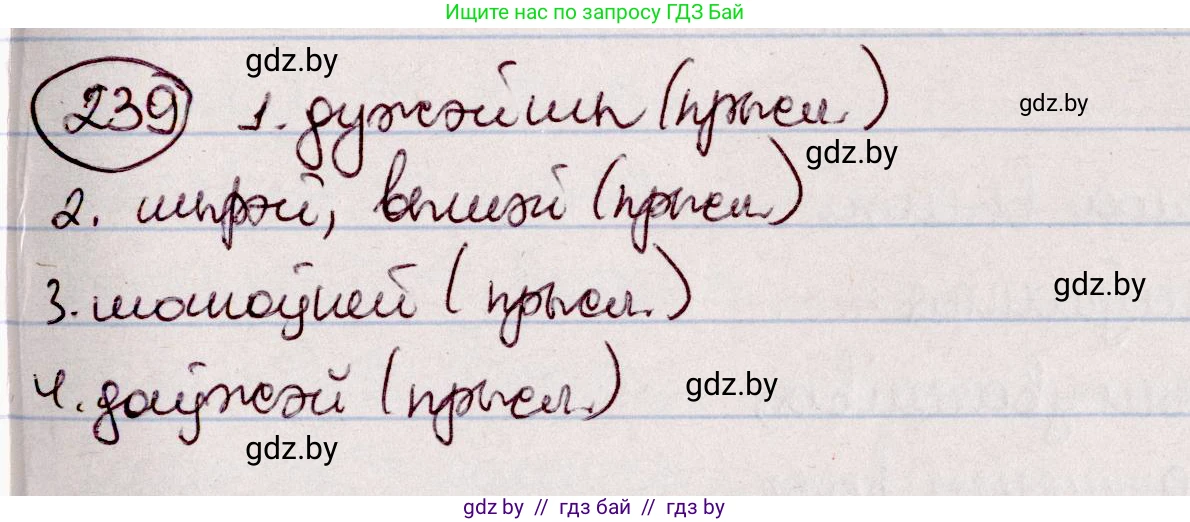 Ищите нас по запросу ГДЗ Бай
239 1. дужэйшы (прысл.)
2. шырэй, вышэй (прысл.)
3. шматоўней (прысл.)
4. даўжэй (прысл.)
gdz.by
gdz.by
gdz.by
gdz.by
gdz.by
gdz.by
gdz by // гдз бай // гдз by